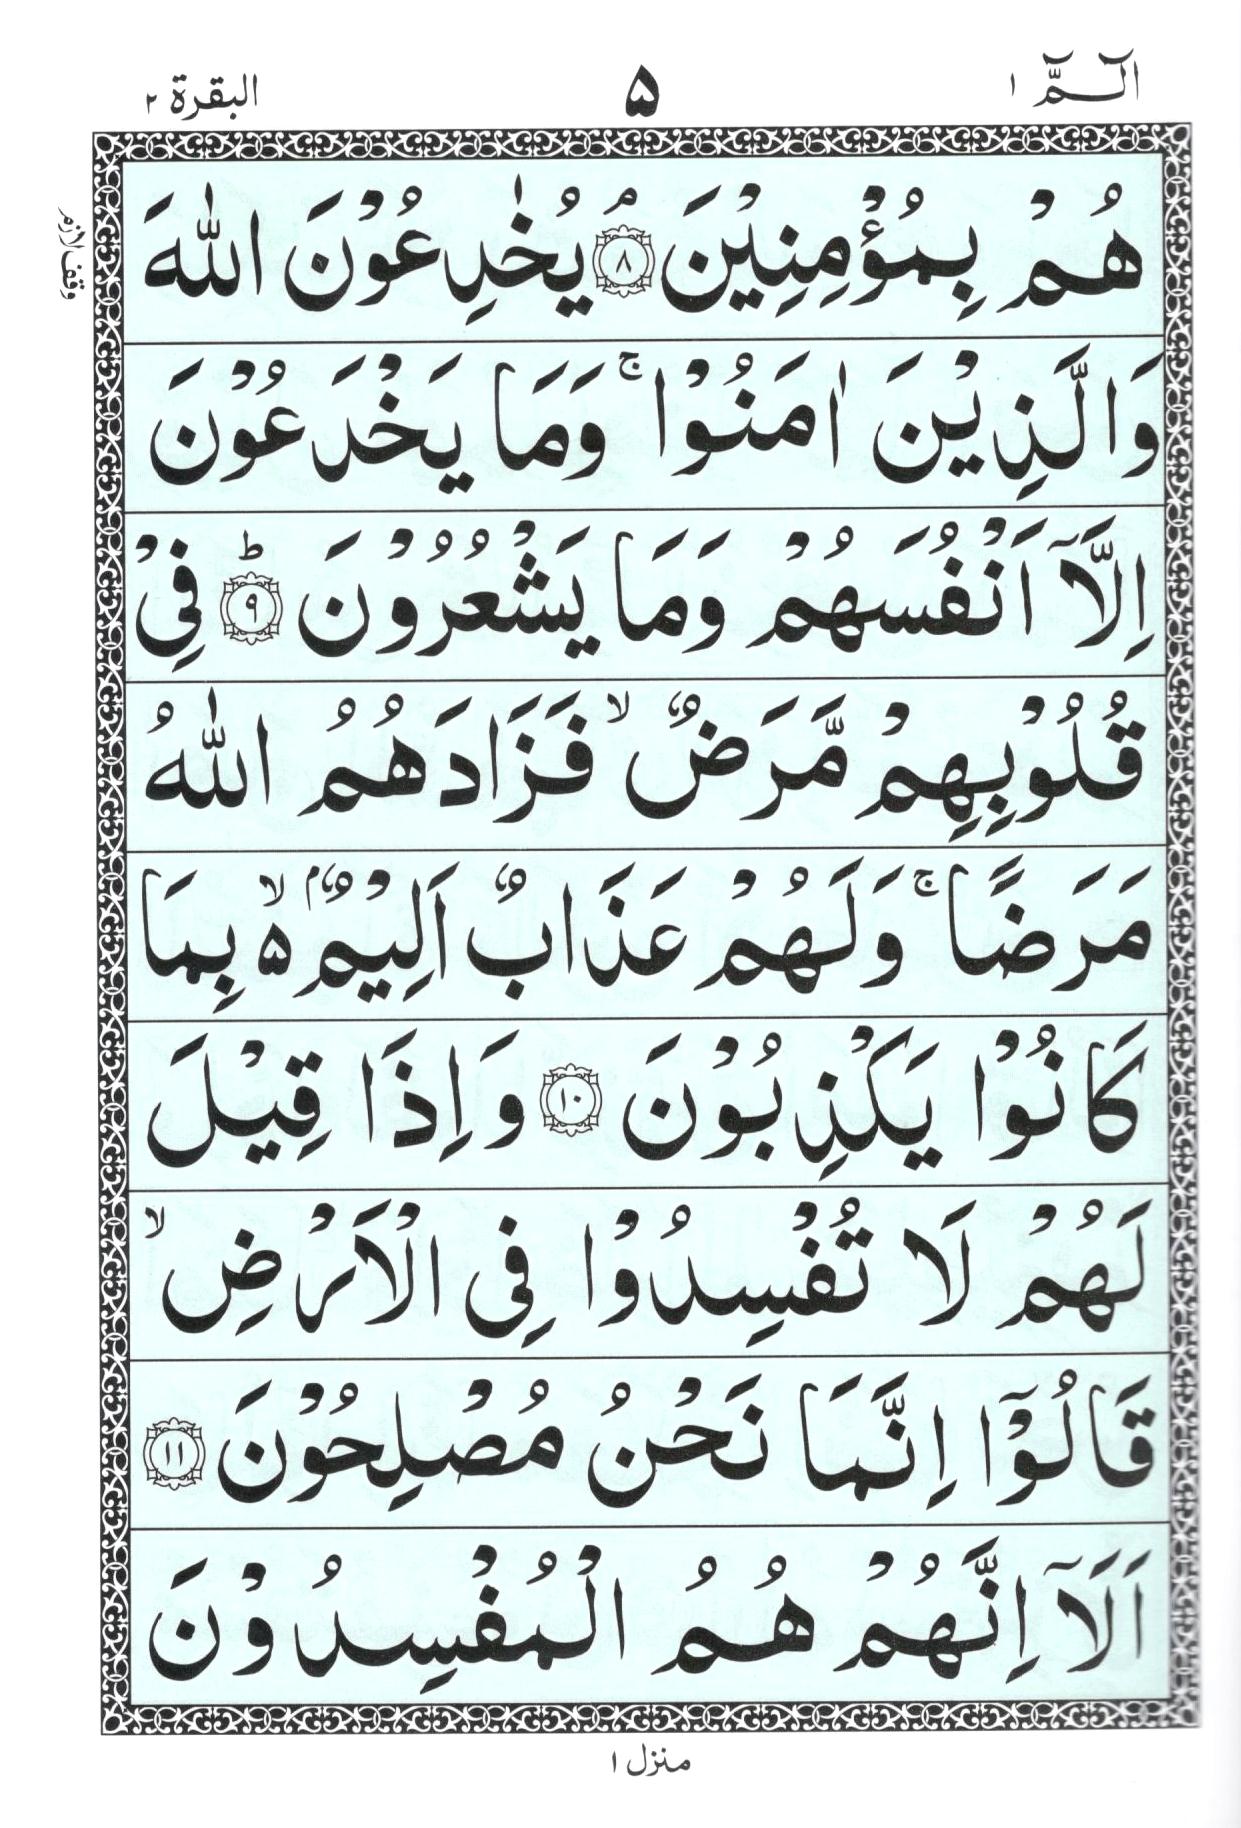 الٓــمّٓ ۱
۵
البقرة ۲
وقف لازم
هُمْ بِمُؤْمِنِيْنَ ۘ﴿۸﴾ يُخٰدِعُوْنَ اللّٰهَ
وَالَّذِيْنَ اٰمَنُوْا ۚ وَمَا يَخْدَعُوْنَ
اِلَّآ اَنْفُسَهُمْ وَمَا يَشْعُرُوْنَ ؕ﴿۹﴾ فِيْ
قُلُوْبِهِمْ مَّرَضٌ ۙ فَزَادَهُمُ اللّٰهُ
مَرَضًا ۚ وَلَهُمْ عَذَابٌ اَلِيْمٌۢ ۵ۙ بِمَا
كَانُوْا يَكْذِبُوْنَ ﴿۱۰﴾ وَاِذَا قِيْلَ
لَهُمْ لَا تُفْسِدُوْا فِى الْاَرْضِ ۙ
قَالُوْٓا اِنَّمَا نَحْنُ مُصْلِحُوْنَ ﴿۱۱﴾
اَلَآ اِنَّهُمْ هُمُ الْمُفْسِدُوْنَ
منزل ۱